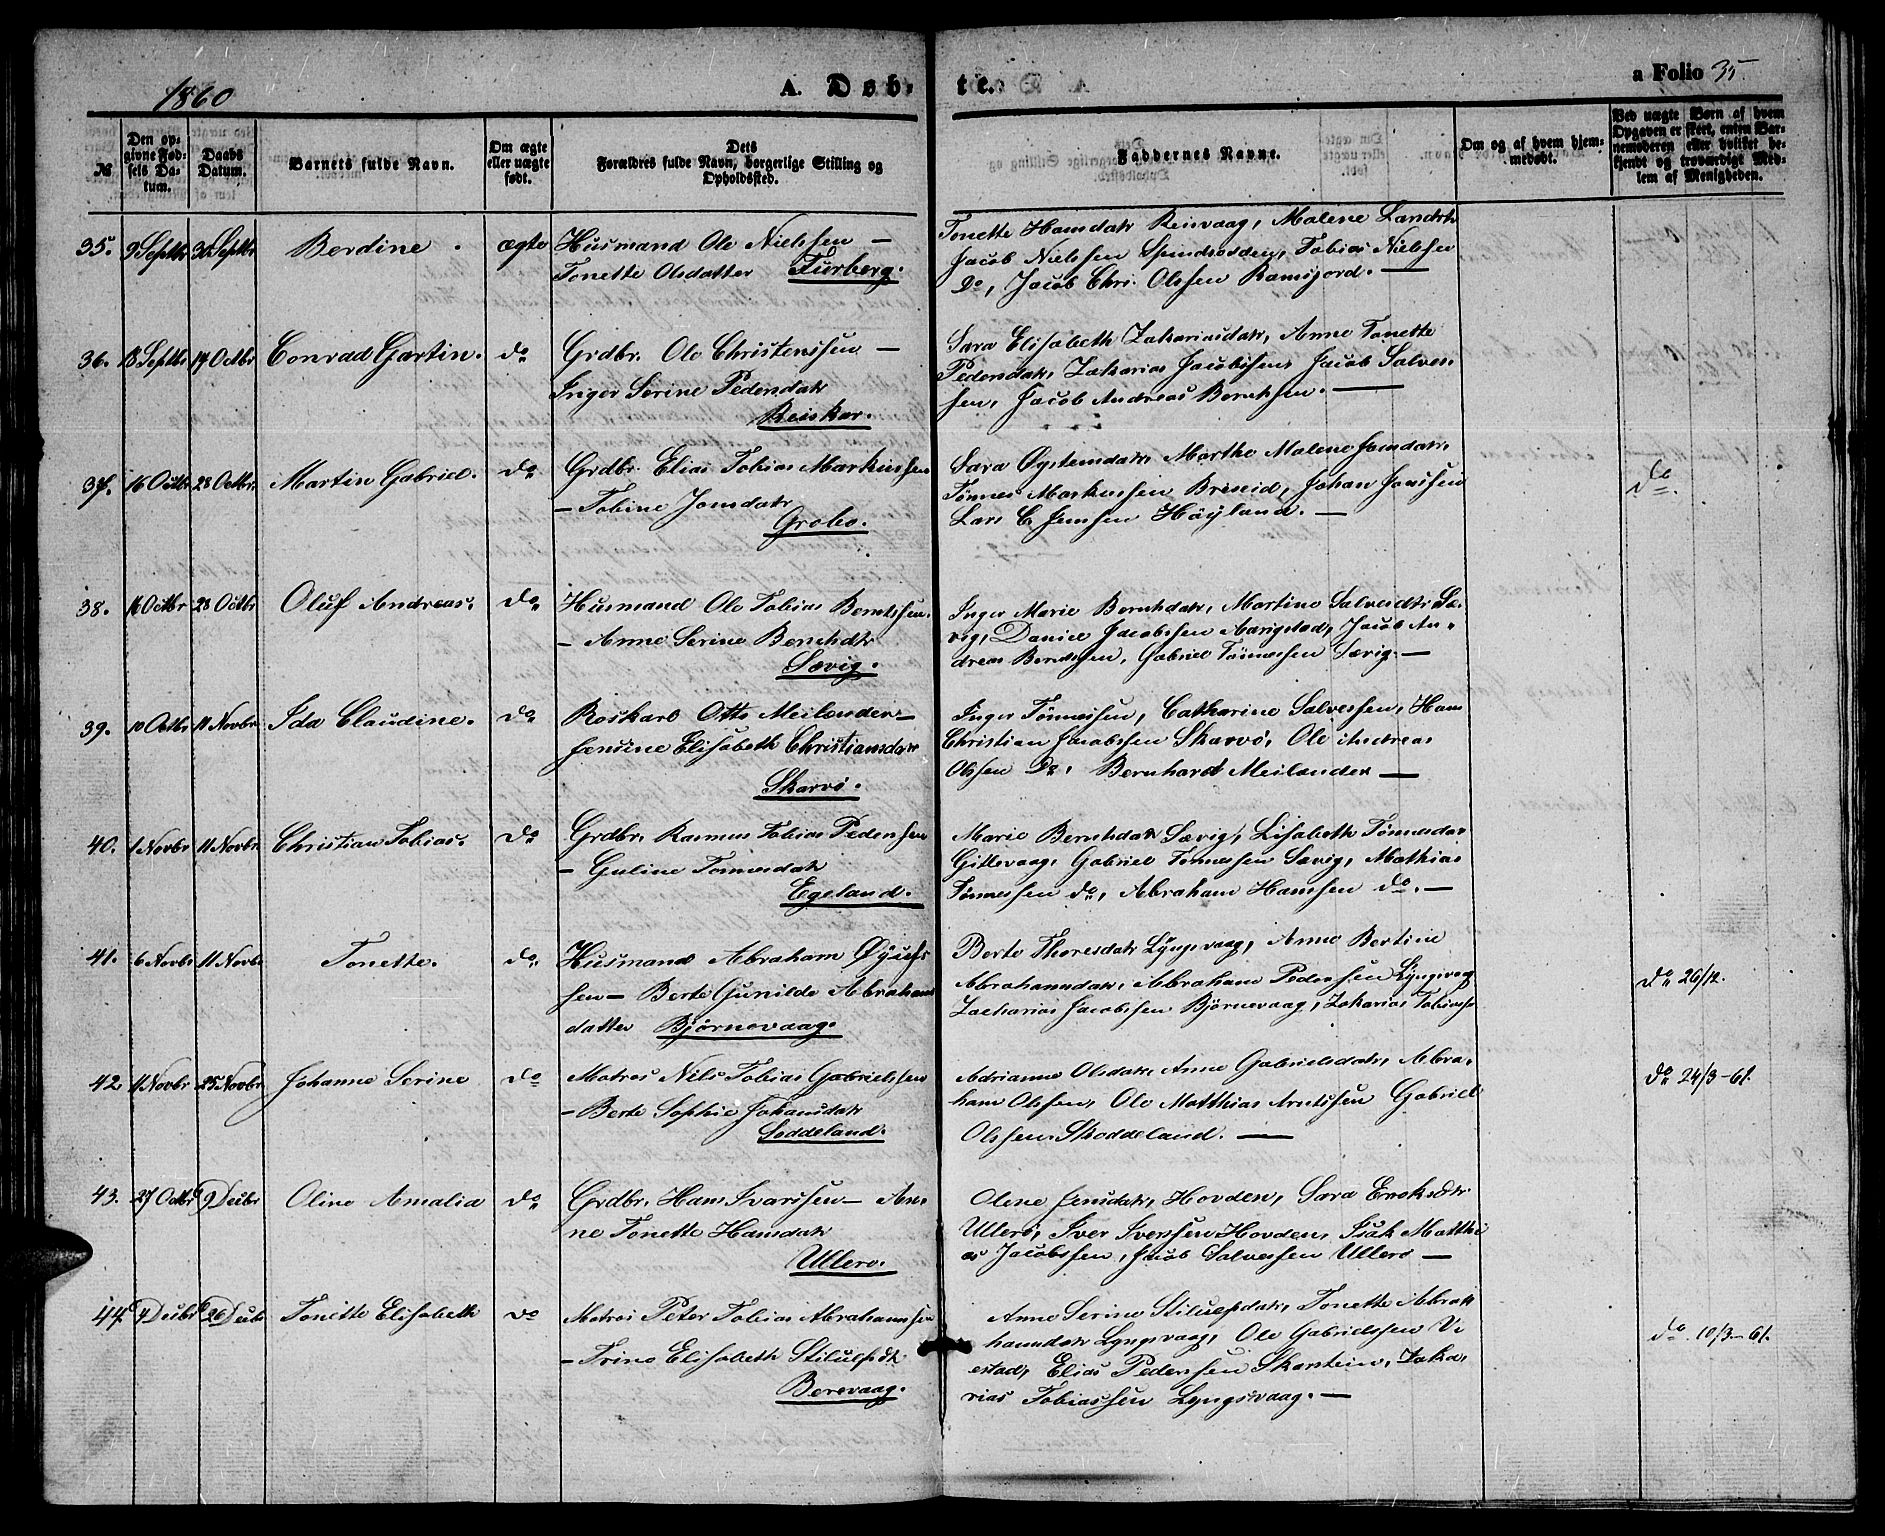 1860
A. Døbte.
a Folio 35.
№
Den opgivne Fødsels Datum.
Daabs Datum.
Barnets fulde Navn.
Om ægte eller uægte født.
Dets Forældres fulde Navn, borgerlige Stilling og Opholdssted.
Faddernes Navne.
Om og af hvem hjemmedøbt.
Ved uægte Børn af hvem Opgaven er skeet, enten Barnemoderen eller hvilket bekjendt og troværdigt Medlem af Menigheden.
35. 9 Septbr 30 Septbr Berdine ægte Husmand Ole Nielssen –
Tonette Olsdatter Furberg.
Tonette Hansdatr Reisvaag, Malene Larsdtr
Jacob Nielssen Spindsodden, Tobias Nielssen
Do, Jacob Chri. Olssen Ramsjord. —
36. 18 Septbr 14 Octbr Conrad Gartin. do Grdbr. Ole Christenssen –
Inger Serine Pedersdatr
Reiskar.
Sara Elisabeth Zakariasdatr, Anne Tonette
Pedersdatr, Zakarias Jacobssen, Jacob Salves-
sen, Jacob Andreas Berntssen. —
37. 16 Octbr 28 Octbr. Martin Gabriel. do Grdbr. Elias Tobias Markussen
– Tobine Jonsdatr
Grobo.
Sara Øystensdatr, Marthe Malene Jonsdatr,
Tønnes Markussen Briseid, Johan Jonssen
Lars C. Jenssen Høyland. —
do.
38. 16 Octbr 28 Octbr Oluf Andreas. do Husmand Ole Tobias Berntssen.
– Anne Serine Berntsdtr
Sævig.
Inger Marie Berntsdatr, Martine Salvesdtr Sæ-
vig, Daniel Jacobssen Aarigstad, Jacob An-
dreas Berntssen, Gabriel Tønnessen Sævig. —
39. 10 Octbr 11 Novbr. Ida Claudine. do Roskarl Otto Meilænder –
Jensine Elisabeth Christiansdatr
Skarvø.
Inger Tønnessen, Catharine Salvessen, Hans
Christian Jacobssen Skarvø, Ole Andreas
Olssen Do, Bernhardt Meilænder —
40. 1 Novbr 11 Novbr. Christian Tobias. do Grdbr. Rasmus Tobias Pederssen
– Guline Tønnesdatr
Egeland.
Marie Berntsdatr Sævig, Lisabeth Tønnesdatr
Gittevaag, Gabriel Tønnessen Sævig, Mathias
Tønnessen do, Abraham Hanssen do. —
41. 6 Novbr 11 Novbr Tonette. do Husmand Abraham Øyufs
sen – Berte Gunilde Abrahams
datter Bjørnevaag.
Berte Thoresdatr Lyngsvaag, Anne Bertine
Abrahamsdatr, Abraham Pederssen Lyngsvaag
Zacharias Jacobssen Bjørnevaag, Zakarias Tobiassen
do 26/12.
42. 11 Novbr 25 Novbr. Johanne Serine do Matros Nils Tobias Gabrielssen
– Berte Sophie Johansdatr
Soddeland.
Adrianne Olsdatr, Anne Gabrielsdatr, Abra-
ham Olssen, Ole Matthias Arntssen Gabriel
Olssen Skoddeland. —
do 24/3 – 61.
43. 27 Octbr 9 Decbr Oline Amalia do Grdbr. Hans Ivarssen – An-
ne Tonette Hansdatr
Ullerø.
Olene Jensdatr, Hovden, Sara Eriksdtr
Ullerø, Iver Iverssen Hovden, Isak Matthi
as Jacobssen, Jacob Salvessen Ullerø —
44. 4 Decbr 26 Decbr Tonette Elisabeth do Matros Peter Tobias Abrahamssen
– Trine Elisabeth Stilufsdtr
Berevaag.
Anne Serine Stilufsdatr, Tonette Abra
hamsdatr Lyngsvaag, Ole Gabrielssen Vi
estad, Elias Pederssen Skarstein, Zaka,
rias Tobiassen Lyngsvaag. —
do. 10/3 – 61.